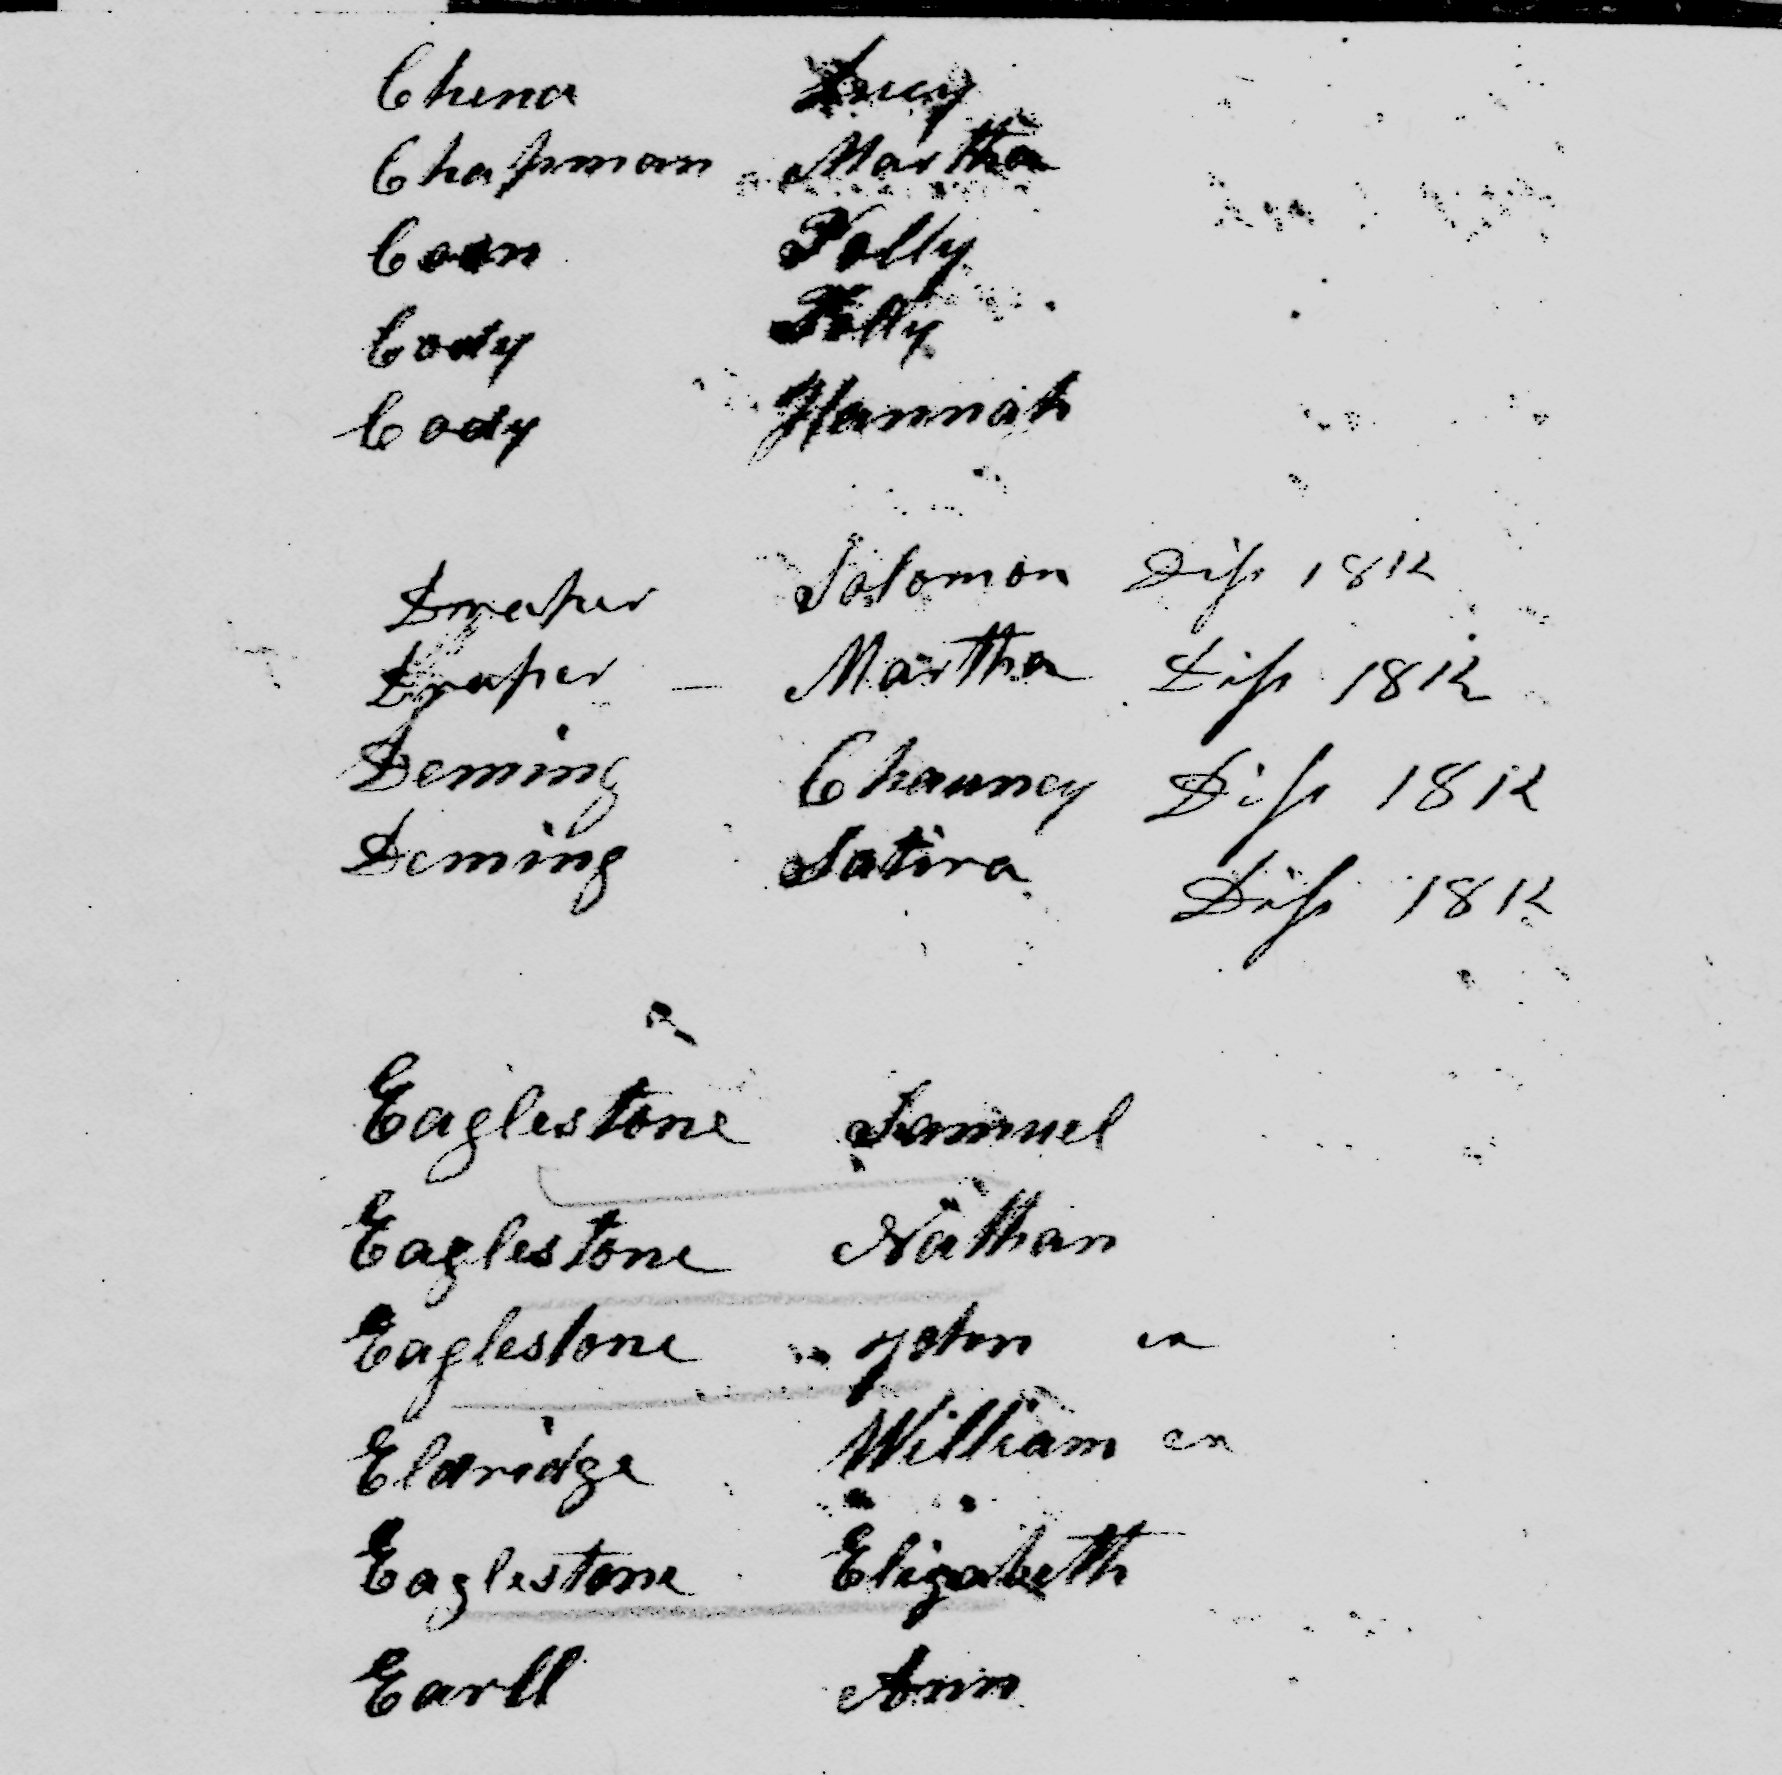 China Lucy
Chapman Martha
Coon Polly
Cody Polly
Cody Hannah
Draper Solomon Diſs 1812
Draper — Martha Diſs 1812
Deming Chauncy Diſs 1812
Deming Satira Diſs 1812
Eaglestone Samuel
Eaglestone Nathan
Eaglestone John ex
Eldridge William ex
Eaglestone Elizabeth
Earll Ann